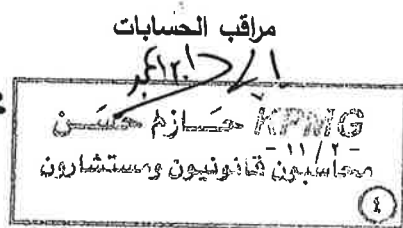 مراقب الحسابات
KPMG حازم حسن
- ١١/٢ -
محاسبون قانونيون ومستشارون
٤